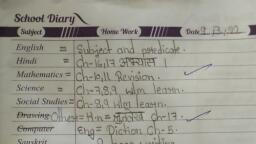 School Diary
Subject Home Work Date 9, 13, 92
English = Subject and predicate.
Hindi = Ch-16,17 अभ्यास ।
Mathematics = Ch-10,11 Revision.
Science = Ch-7,8,9, learn.
Social Studies = Ch-8,9 learn.
Drawing Other = Hin = ch-17.
Computer Eng = Diction Ch-5.
Sanskrit